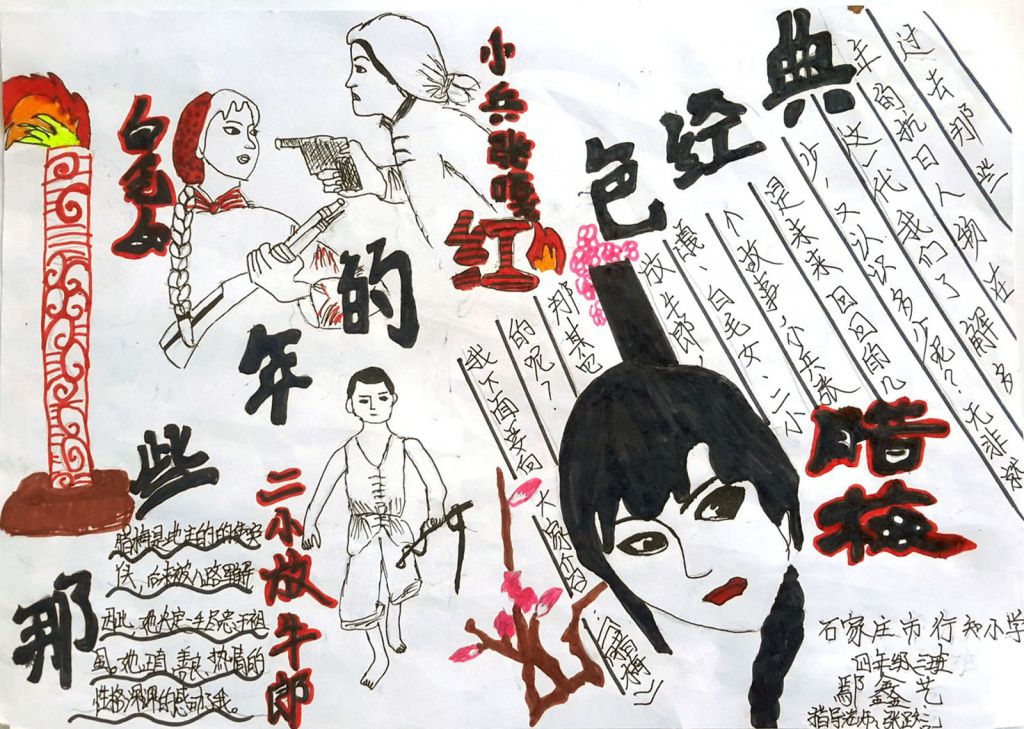 那些年的红色经典
白毛女
小兵张嘎
二小放牛郎
腊梅
过去那些
年的抗日人物在
这一代我们了解多
少,又认识多少呢?无非就
是来来回回的几
个故事小兵张
嘎、白毛女、二小
放牛郎,
那其
的呢?
我下面要向大家介
《腊梅》
腊梅是地主的的使
伙,后来被八路军解
因此,她决定一生尽忠于祖
国,她正直、善良、热情的
性格深深的感动了我。
石家庄市行知小学
四年级三班
鄢鑫艺
指导老师:张跃